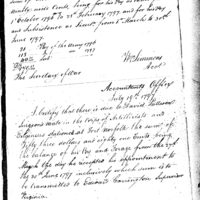 ninety nine Cents, being for his pay
1st October 1796 to 28th February 1797. and for his Pay
and Subsistence as Lieut. from 1st March to 30th
June 1797.
Pay of the Army 1796
1797
The Secretary of War
Wm Simmons
Acct
Accountants Office
July 19th 1797
I certify that there is due to
Surgeons mate in the Corps of Artillerists and
Engineers stationed at Fort Norfolk the sum of
Fifty three dollars and eighty one Cents, being
the balance of his Pay and Forage from the 27th
March the day he accepted his appointment to
the 30th June 1797 inclusively which sum is to
be transmitted to Edward Carrington Supervisor
Virginia.